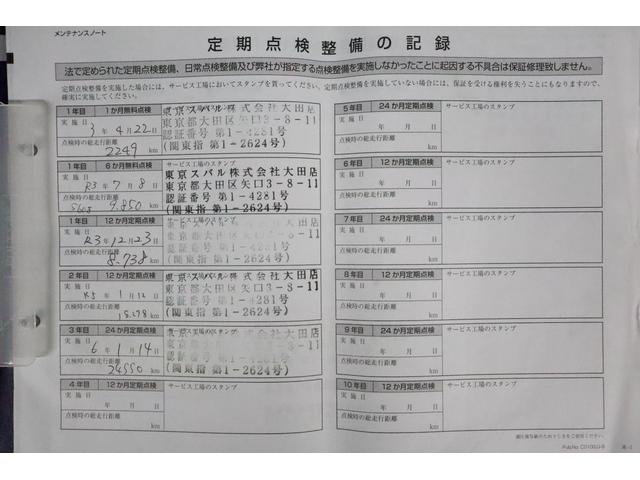 メンテナンスノート
定期点検整備の記録
法で定められた定期点検整備、日常点検整備及び弊社が指定する点検整備を実施しなかったことに起因する不具合は保証修理致しません。
定期点検整備を実施した場合には、サービス工場においてスタンプを貰ってください。定期点検整備を実施していない場合には、保証を受ける権利を失うこともなりますので、
確実に実施してください。
1年目 1か月無料点検
実施日
3年4月22日
点検時の総走行距離
2249 km
東京スバル株式会社大田店
東京都大田区矢口3-8-11
認証番号 第1-4281号
(関東指 第1-2624号)
1年目 6か月無料点検
実施日
R3年7月8日
点検時の総走行距離
km
サービス工場のスタンプ
東京スバル株式会社大田店
東京都大田区矢口3-8-11
認証番号 第1-4281号
(関東指 第1-2624号)
1年目 12か月定期点検
実施日
R3年12月23日
点検時の総走行距離
8.738 km
サービス工場のスタンプ
東京スバル株式会社大田店
東京都大田区矢口3-8-11
認証番号 第1-4281号
(関東指 第1-2624号)
2年目 12か月定期点検
実施日
R5年1月12日
点検時の総走行距離
km
東京スバル株式会社大田店
東京都大田区矢口3-8-11
認証番号 第1-4281号
(関東指 第1-2624号)
3年目 24か月定期点検
実施日
6年1月14日
点検時の総走行距離
24550 km
サービス工場のスタンプ
東京スバル株式会社大田店
認証番号 第1-4281号
(関東指 第1-2624号)
4年目 12か月定期点検
実施日
年 月 日
点検時の総走行距離
km
サービス工場のスタンプ
5年目 24か月定期点検
実施日
年 月 日
点検時の総走行距離
km
サービス工場のスタンプ
6年目 12か月定期点検
実施日
年 月 日
点検時の総走行距離
km
サービス工場のスタンプ
7年目 24か月定期点検
実施日
年 月 日
点検時の総走行距離
km
サービス工場のスタンプ
8年目 12か月定期点検
実施日
年 月 日
点検時の総走行距離
km
サービス工場のスタンプ
9年目 24か月定期点検
実施日
年 月 日
点検時の総走行距離
km
サービス工場のスタンプ
10年目 12か月定期点検
実施日
年 月 日
点検時の総走行距離
km
サービス工場のスタンプ